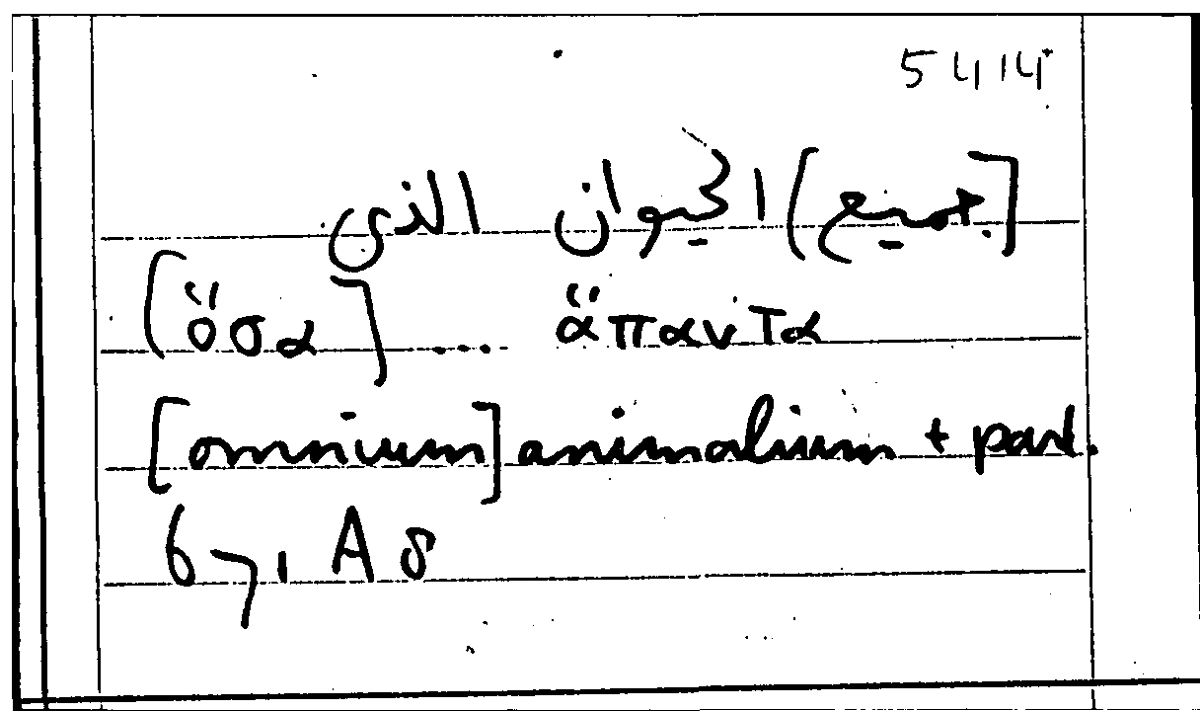 5414
[جميع] الحيوان الذى
[ὅσα] .... ἅπαντα
[omnium] animalium + part.
67, A 8